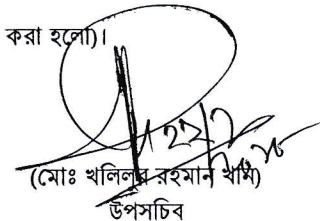 করা হলো)।
(মোঃ খলিলুর রহমান খান)
উপসচিব